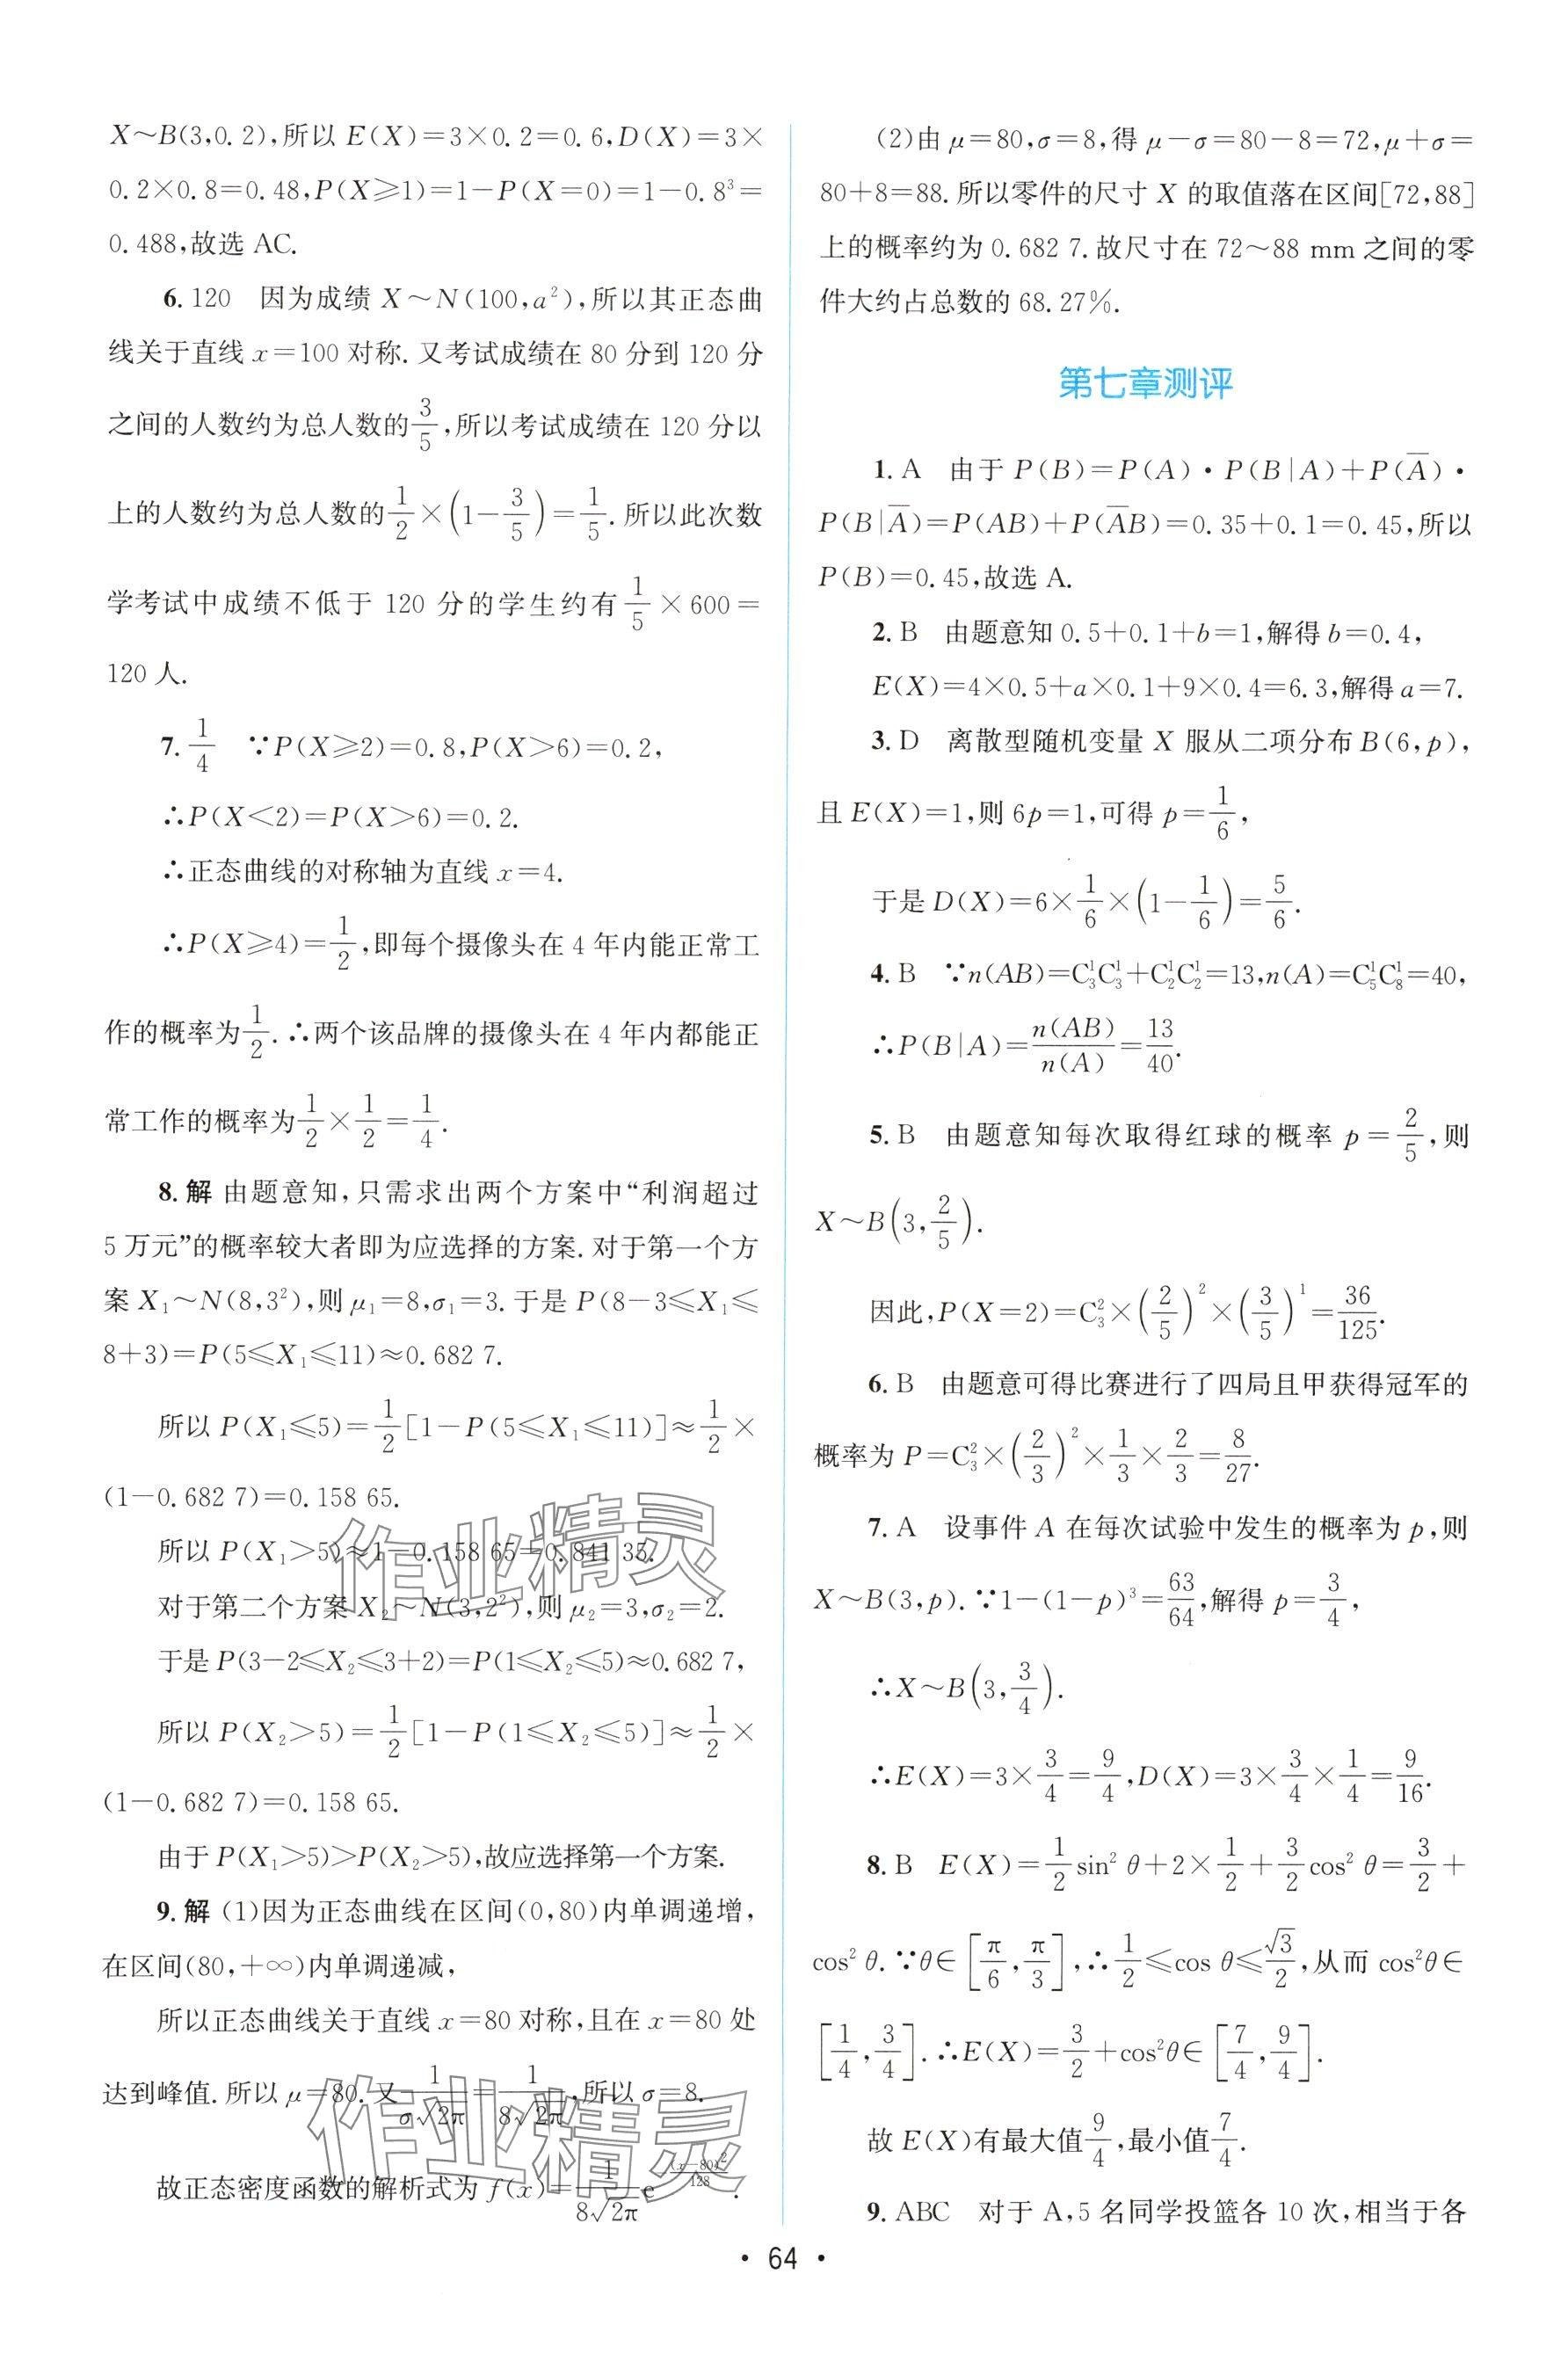 X～B(3,0.2),所以 E(X)=3×0.2=0.6,D(X)=3×
0.2×0.8=0.48,P(X≥1)=1−P(X=0)=1−0.8³=
0.488,故选 AC.
6.120 因为成绩 X～N(100,a²),所以其正态曲
线关于直线 x=100 对称.又考试成绩在 80 分到 120 分
之间的人数约为总人数的3/5,所以考试成绩在 120 分以
上的人数约为总人数的1/2×(1−3/5)=1/5.所以此次数
学考试中成绩不低于 120 分的学生约有1/5×600=
120 人.
7.1/4 ∵P(X≥2)=0.8,P(X>6)=0.2,
∴P(X<2)=P(X>6)=0.2.
∴正态曲线的对称轴为直线 x=4.
∴P(X≥4)=1/2,即每个摄像头在 4 年内能正常工
作的概率为1/2.∴两个该品牌的摄像头在 4 年内都能正
常工作的概率为1/2×1/2=1/4.
8.解 由题意知,只需求出两个方案中“利润超过
5 万元”的概率较大者即为应选择的方案.对于第一个方
案 X₁～N(8,3²),则 μ₁=8,σ₁=3.于是 P(8−3≤X₁≤
8+3)=P(5≤X₁≤11)≈0.682 7.
所以 P(X₁≤5)=1/2[1−P(5≤X₁≤11)]≈1/2×
(1−0.682 7)=0.158 65.
所以 P(X₁>5)≈1−0.158 65=0.841 35.
对于第二个方案 X₂～N(3,2²),则 μ₂=3,σ₂=2.
于是 P(3−2≤X₂≤3+2)=P(1≤X₂≤5)≈0.682 7,
所以 P(X₂>5)=1/2[1−P(1≤X₂≤5)]≈1/2×
(1−0.682 7)=0.158 65.
由于 P(X₁>5)>P(X₂>5),故应选择第一个方案.
9.解 (1)因为正态曲线在区间(0,80)内单调递增,
在区间(80,+∞)内单调递减,
所以正态曲线关于直线 x=80 对称,且在 x=80 处
达到峰值.所以 μ=80.又1/(σ√2π)=1/(8√2π),所以 σ=8.
故正态密度函数的解析式为 f(x)=1/(8√2π)e^(−(x−80)²/128).
(2)由 μ=80,σ=8,得 μ−σ=80−8=72,μ+σ=
80+8=88.所以零件的尺寸 X 的取值落在区间[72,88]
上的概率约为 0.682 7.故尺寸在 72～88 mm 之间的零
件大约占总数的 68.27%.
第七章测评
1.A 由于 P(B)=P(A)·P(B|A)+P(A̅)·
P(B|A̅)=P(AB)+P(A̅B)=0.35+0.1=0.45,所以
P(B)=0.45,故选 A.
2.B 由题意知 0.5+0.1+b=1,解得 b=0.4,
E(X)=4×0.5+a×0.1+9×0.4=6.3,解得 a=7.
3.D 离散型随机变量 X 服从二项分布 B(6,p),
且 E(X)=1,则 6p=1,可得 p=1/6,
于是 D(X)=6×1/6×(1−1/6)=5/6.
4.B ∵n(AB)=C₃¹C₃¹+C₂¹C₂¹=13,n(A)=C₅¹C₈¹=40,
∴P(B|A)=n(AB)/n(A)=13/40.
5.B 由题意知每次取得红球的概率 p=2/5,则
X～B(3,2/5).
因此,P(X=2)=C₃²×(2/5)²×(3/5)¹=36/125.
6.B 由题意可得比赛进行了四局且甲获得冠军的
概率为 P=C₃²×(2/3)²×1/3×2/3=8/27.
7.A 设事件 A 在每次试验中发生的概率为 p,则
X～B(3,p).∵1−(1−p)³=63/64,解得 p=3/4,
∴X～B(3,3/4).
∴E(X)=3×3/4=9/4,D(X)=3×3/4×1/4=9/16.
8.B E(X)=1/2sin² θ+2×1/2+3/2cos² θ=3/2+
cos² θ.∵θ∈[π/6,π/3],∴1/2≤cos θ≤√3/2,从而 cos²θ∈
[1/4,3/4].∴E(X)=3/2+cos²θ∈[7/4,9/4].
故 E(X)有最大值9/4,最小值7/4.
9.ABC 对于 A,5 名同学投篮各 10 次,相当于各
• 64 •
作业精灵
作业精灵